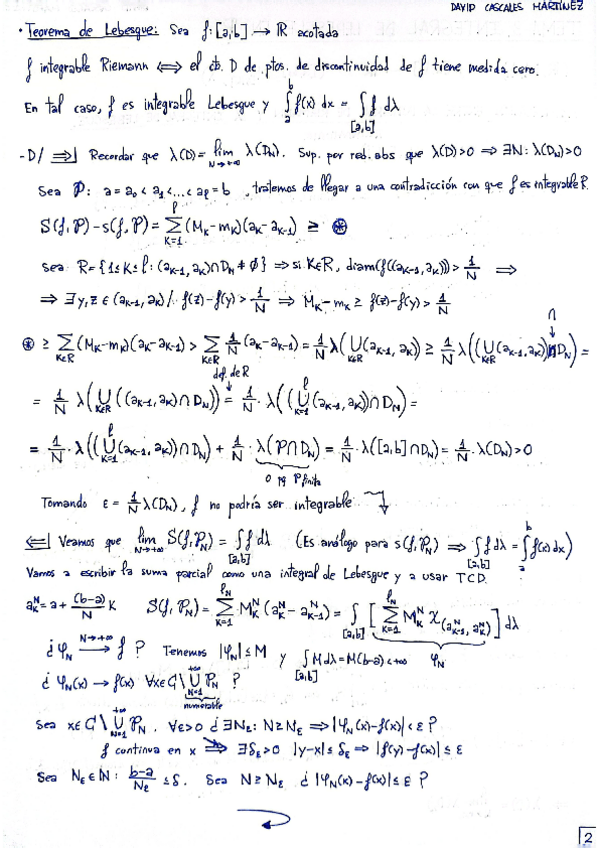 DAVID CASCALES MARTÍNEZ
· Teorema de Lebesgue: Sea f: [a,b] → ℝ acotada
f integrable Riemann ⟺ el cb. D de ptos. de discontinuidad de f tiene medida cero.
En tal caso, f es integrable Lebesgue y ∫_a^b f(x) dx = ∫_[a,b] f dλ
-D/ ⟹| Recordar que λ(D) = lim_{N→+∞} λ(D_N). Sup. por red. abs que λ(D)>0 ⟹ ∃N: λ(D_N)>0
Sea P: a = a_0 < a_1 < ... < a_l = b, tratemos de llegar a una contradicción con que f es integrable R.
S(f,P) - s(f,P) = Σ_{K=1}^l (M_K - m_K)(a_K - a_{K-1}) ≥ ⊛
Sea R = {1≤K≤l : (a_{K-1}, a_K)∩D_N ≠ ∅} ⟹ si K∈R, diam(f((a_{K-1}, a_K))) > 1/N ⟹
⟹ ∃ y,z ∈ (a_{K-1}, a_K) /. f(z)-f(y) > 1/N ⟹ M_K - m_K ≥ f(z)-f(y) > 1/N
⊛ ≥ Σ_{K∈R} (M_K - m_K)(a_K - a_{K-1}) > Σ_{K∈R} 1/N (a_K - a_{K-1}) = 1/N λ(⋃_{K∈R} (a_{K-1}, a_K)) ≥ 1/N λ((⋃_{K∈R} (a_{K-1}, a_K)) ∩ D_N) =
def. de R
= 1/N · λ(⋃_{K∈R} ((a_{K-1}, a_K)∩D_N)) = 1/N · λ((⋃_{K=1}^l (a_{K-1}, a_K))∩D_N) =
= 1/N · λ((⋃_{K=1}^l (a_{K-1}, a_K))∩D_N) + 1/N · λ(P∩D_N) = 1/N · λ([a,b]∩D_N) = 1/N · λ(D_N) > 0
0 pq P finita
Tomando ε = 1/N λ(D_N), f no podría ser integrable
⟸| Veamos que lim_{N→+∞} S(f,P_N) = ∫_[a,b] f dλ (Es análogo para s(f,P_N) ⟹ ∫_[a,b] f dλ = ∫_a^b f(x) dx)
Vamos a escribir la suma parcial como una integral de Lebesgue y a usar TCD.
a_K^N = a + (b-a)/N K S(f,P_N) = Σ_{K=1}^{l_N} M_K^N (a_K^N - a_{K-1}^N) = ∫_[a,b] [Σ_{K=1}^{l_N} M_K^N χ_{(a_{K-1}^N, a_K^N)}] dλ
¿ φ_N →^{N→+∞} f ? Tenemos |φ_N| ≤ M y ∫_[a,b] M dλ = M(b-a) < +∞ φ_N
¿ φ_N(x) → f(x) ∀x∈C\⋃_{N=1}^{+∞} P_N ?
numerable
Sea x∈C\⋃_{N=1}^{+∞} P_N. ∀ε>0 ¿ ∃N_ε: N≥N_ε ⟹ |φ_N(x)-f(x)| < ε ?
f continua en x ⟹ ∃δ_ε>0 |y-x| ≤ δ_ε ⟹ |f(y)-f(x)| ≤ ε
Sea N_ε∈ℕ: (b-a)/N_ε ≤ δ. Sea N≥N_ε ¿ |φ_N(x)-f(x)| ≤ ε ?
2